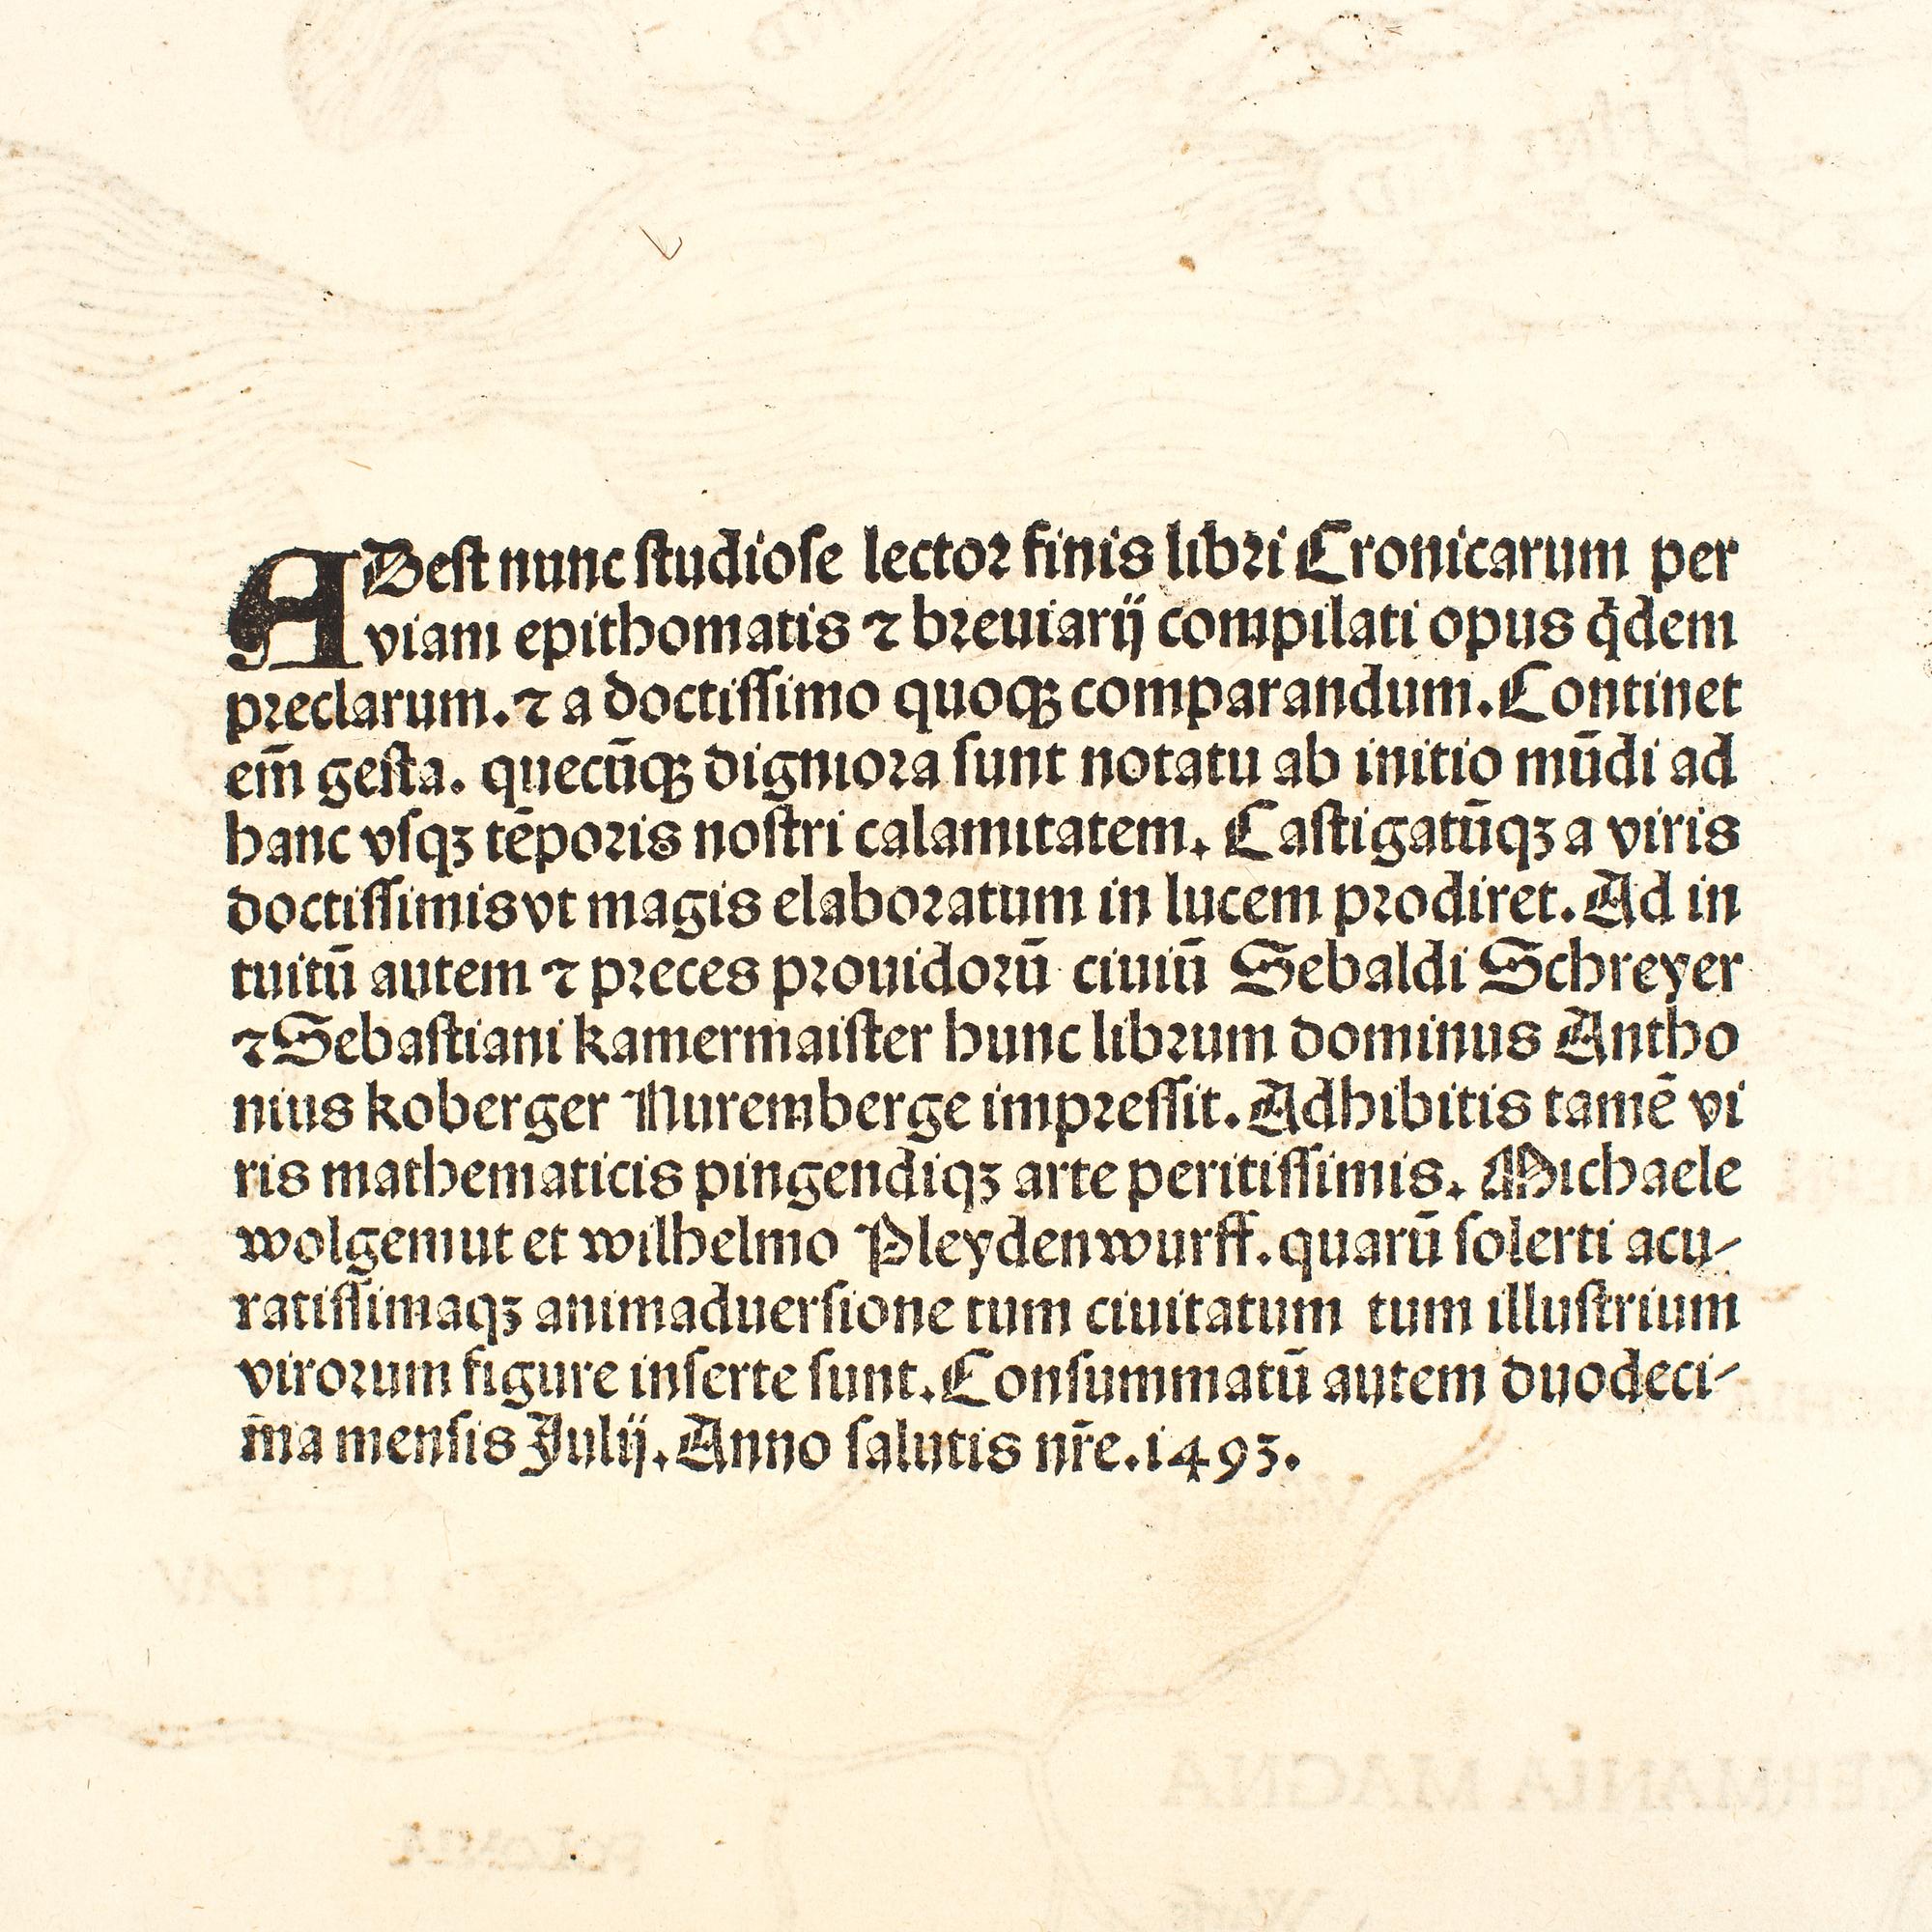 ADest nunc studiose lector finis libri Cronicarum per
viam epithomatis ⁊ breuiarij compilati opus q̄dem
preclarum. ⁊ a doctissimo quoqꝫ comparandum. Continet
em̄ gesta. quecūqꝫ digniora sunt notatu ab initio mūdi ad
hanc vsqꝫ tēporis nostri calamitatem. Castigatūqꝫ a viris
doctissimis vt magis elaboratum in lucem prodiret. Ad in
tuitū autem ⁊ preces prouidorū ciuiū Sebaldi Schreyer
⁊ Sebastiani kamermaister hunc librum dominus Antho
nius koberger Nuremberge impressit. Adhibitis tamē vi
ris mathematicis pingendiqꝫ arte peritissimis. Michaele
wolgemut et wilhelmo Pleydenwurff. quarū solerti acu-
ratissimaqꝫ animaduersione tum ciuitatum tum illustrium
virorum figure inserte sunt. Consummatū autem duodeci-
ma mensis Julij. Anno salutis nr̄e. 1493.
GERMANIA MAGNA
POLONIA